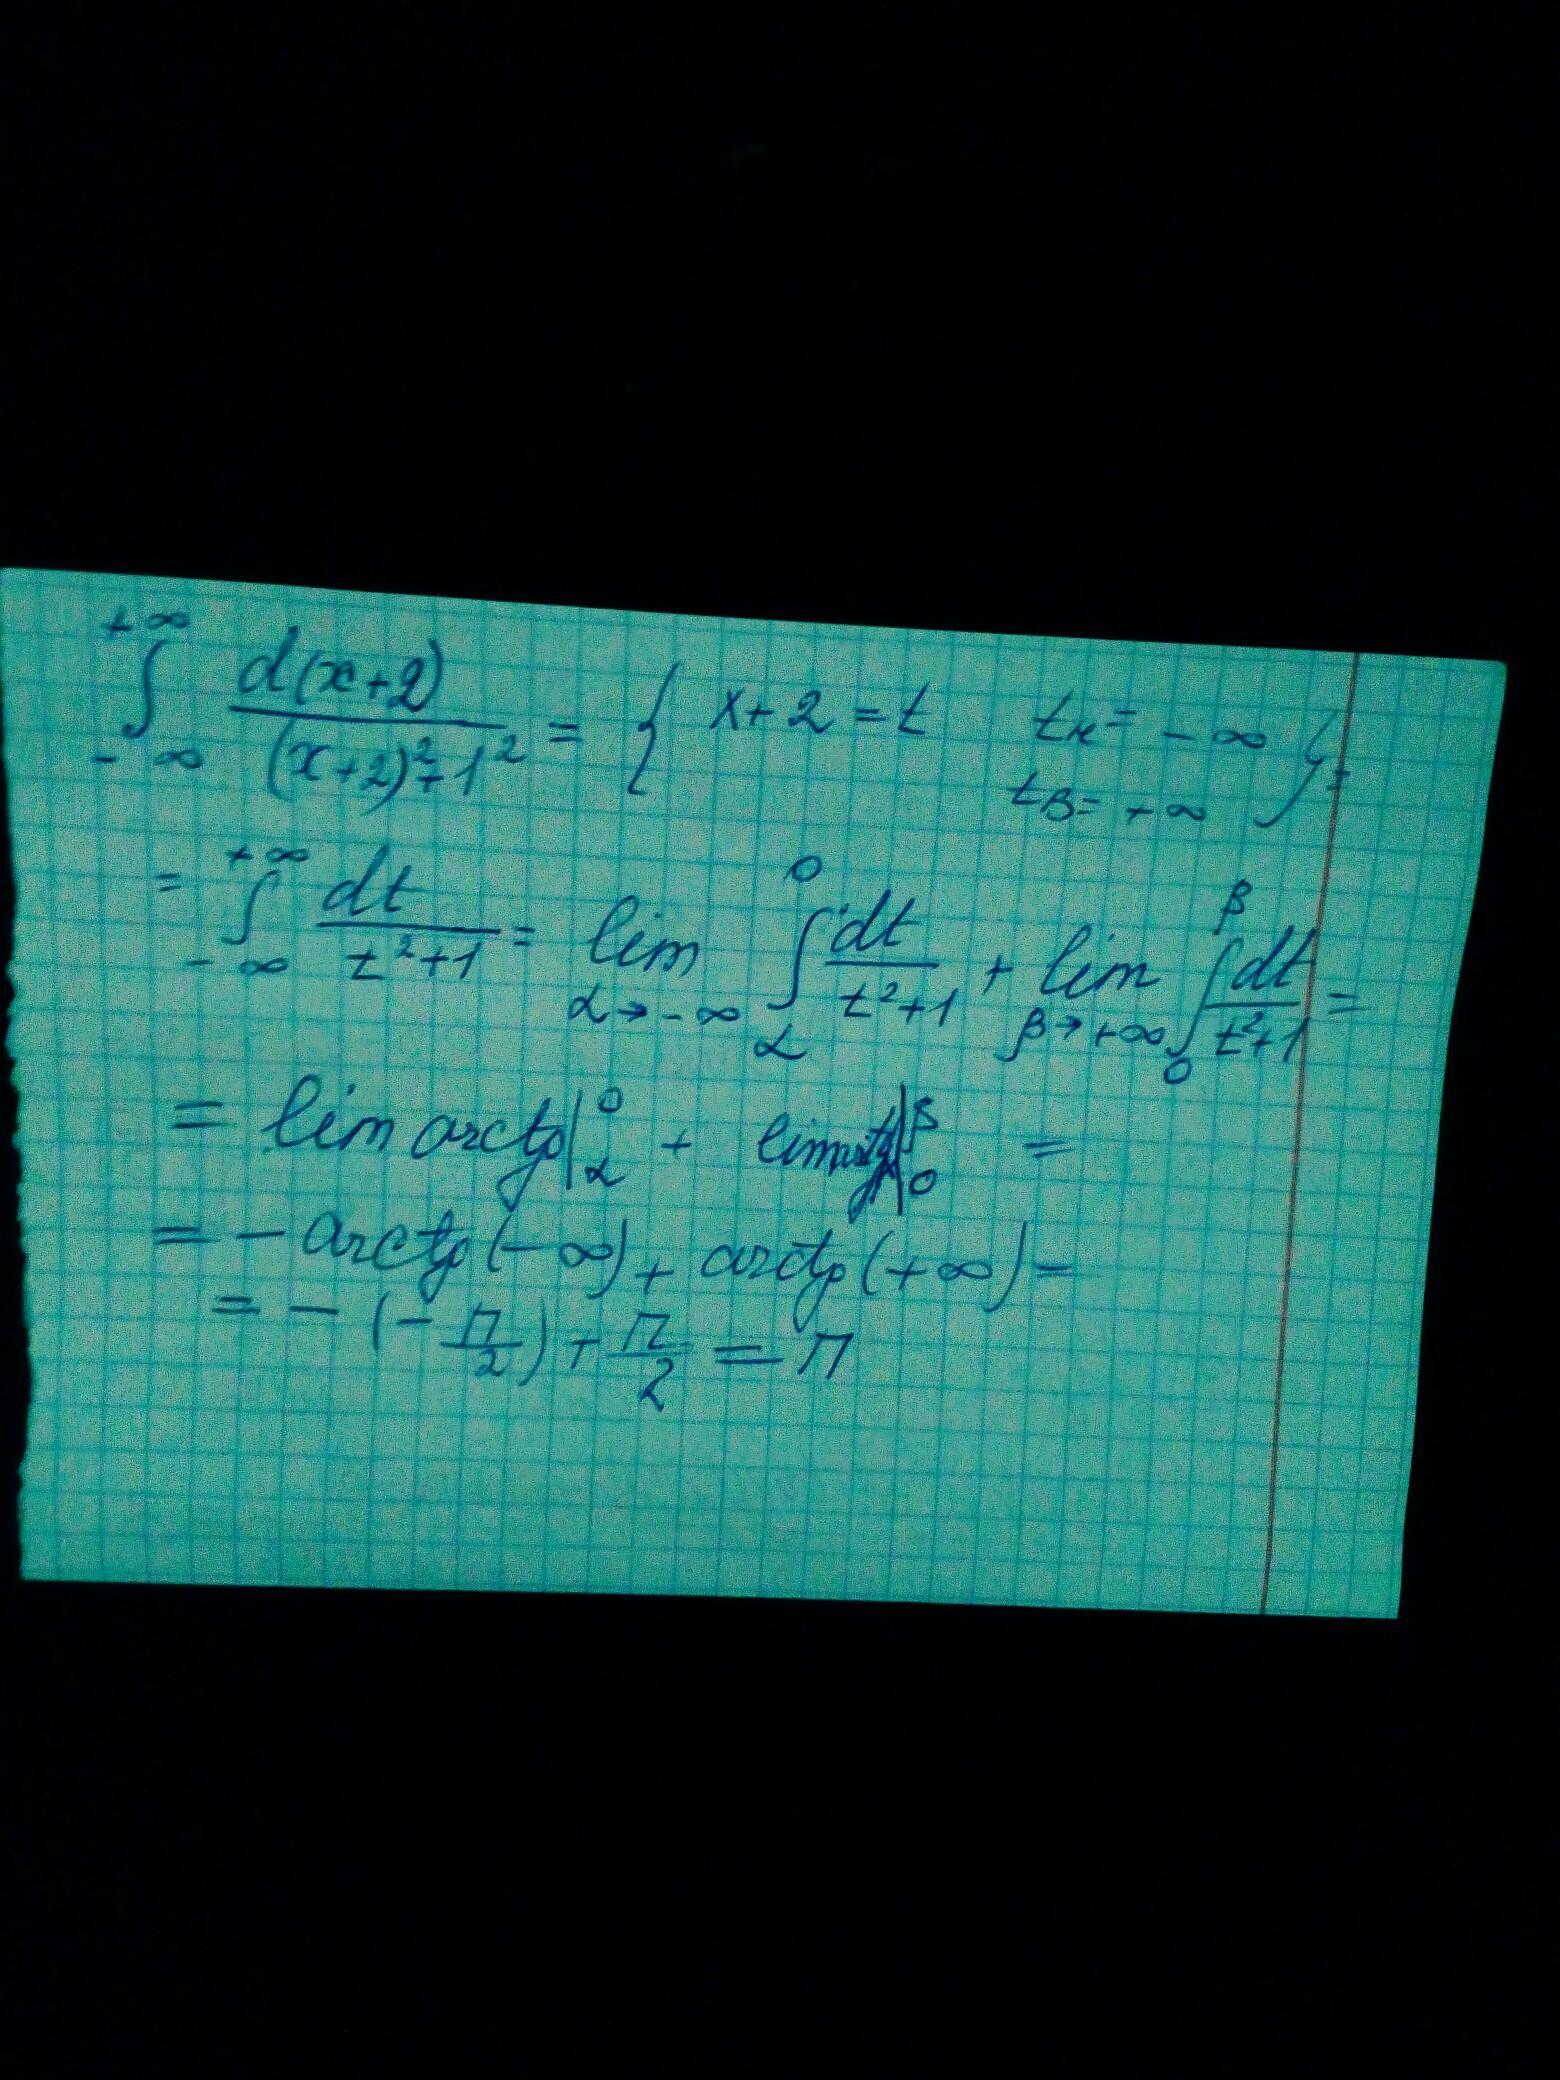 +∞∫-∞ d(x+2)/((x+2)²+1²) = { x+2=t tн= -∞ tв= +∞ } =
= +∞∫-∞ dt/(t²+1) = lim α→-∞ 0∫α dt/(t²+1) + lim β→+∞ β∫0 dt/(t²+1) =
= lim arctg|0 α + lim arctg|β 0 =
= - arctg(-∞) + arctg(+∞) =
= -(-π/2) + π/2 = π